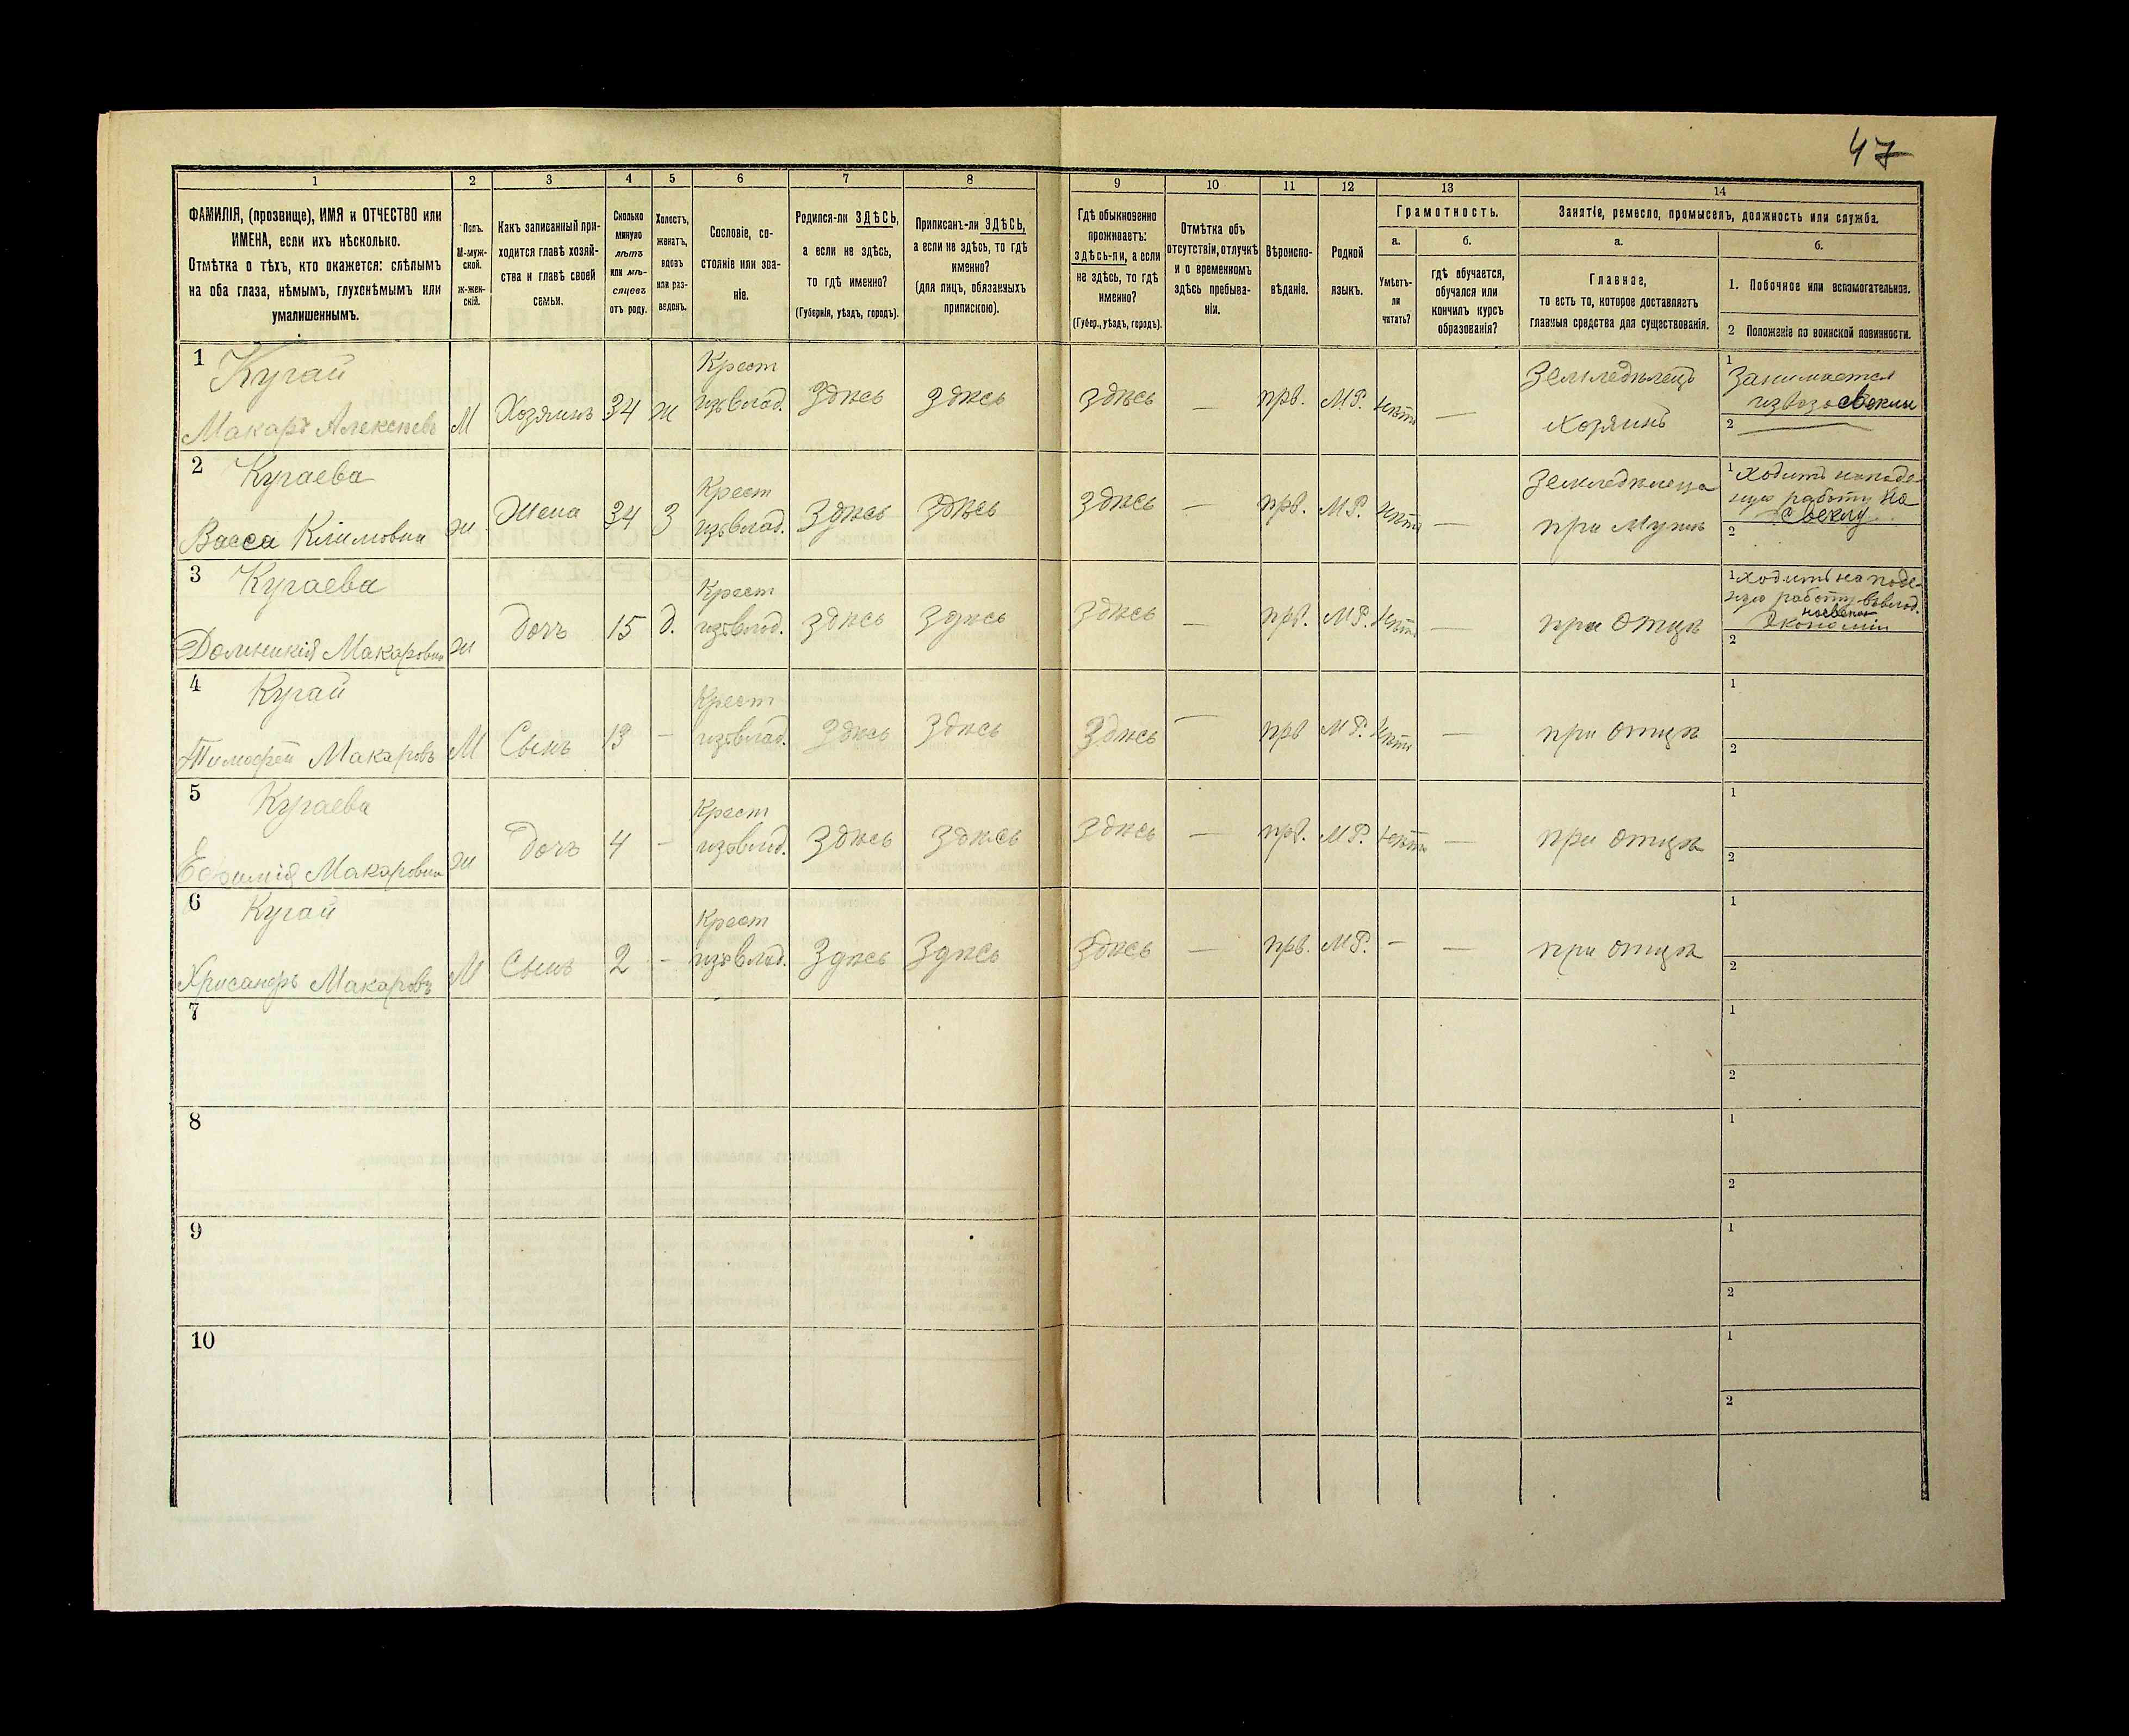 47
1 2 3 4 5 6 7 8 9 10 11 12 13 14
ФАМИЛІЯ, (прозвище), ИМЯ и ОТЧЕСТВО или
ИМЕНА, если ихъ нѣсколько.
Отмѣтка о тѣхъ, кто окажется: слѣпымъ
на оба глаза, нѣмымъ, глухонѣмымъ или
умалишеннымъ.
Полъ.
М-муж-
ской.
Ж-жен-
скій.
Какъ записанный при-
ходится главѣ хозяй-
ства и главѣ своей
семьи.
Сколько
минуло
лѣтъ
или мѣ-
сяцевъ
отъ роду.
Холостъ,
женатъ,
вдовъ
или раз-
веденъ.
Сословіе, со-
стояніе или зва-
ніе.
Родился-ли ЗДѢСЬ,
а если не здѣсь,
то гдѣ именно?
(Губернія, уѣздъ, городъ).
Приписанъ-ли ЗДѢСЬ,
а если не здѣсь, то гдѣ
именно?
(для лицъ, обязанныхъ
припискою).
Гдѣ обыкновенно
проживаетъ:
здѣсь-ли, а если
не здѣсь, то гдѣ
именно?
(Губер., уѣздъ, городъ).
Отмѣтка объ
отсутствіи, отлучкѣ
и о временномъ
здѣсь пребыва-
ніи.
Вѣроиспо-
вѣданіе.
Родной
языкъ.
Грамотность.
а.
Умѣетъ-
ли
читать?
б.
гдѣ обучается,
обучался или
кончилъ курсъ
образованія?
Занятіе, ремесло, промыселъ, должность или служба.
а.
Главное,
то есть то, которое доставляетъ
главныя средства для существованія.
б.
1. Побочное или вспомогательное.
2 Положеніе по воинской повинности.
1 Кугай
Макаръ Алексѣевъ М Хозяинъ 34 ж Крест
изъ влад. Здѣсь здѣсь здѣсь — прв. М.Р. нѣтъ —
Земледѣлецъ
Хозяинъ
1 Занимается
извозо свеклы
2
2 Кугаева
Васса Климовна ж Жена 34 З Крест
изъ влад. Здѣсь здѣсь здѣсь — прв. М.Р. нѣтъ —
Земледѣлеца
при Мужѣ
1 Ходитъ на поде-
ную работу на
Свеклу
2
3 Кугаева
Домникія Макаровна ж Дочь 15 д. Крест
изъ влад. здѣсь здѣсь здѣсь — прв. М.Р. нѣтъ —
при отцѣ
1 Ходитъ на поде-
ную работу въ влад.
Экономіи
2
4 Кугай
Тимофей Макаровъ М Сынъ 13 — Крест
изъ влад. здѣсь здѣсь здѣсь — прв М.Р. нѣтъ —
при отцѣ
1
2
5 Кугаева
Ефимія Макаровна ж Дочь 4 — Крест
изъ влад. здѣсь здѣсь здѣсь — прв. М.Р. нѣтъ —
при отцѣ
1
2
6 Кугай
Хрисанфъ Макаровъ М Сынъ 2 — Крест
изъ влад. Здѣсь Здѣсь здѣсь — прв. М.Р. — —
при отцѣ
1
2
7
1
2
8
1
2
9
1
2
10
1
2